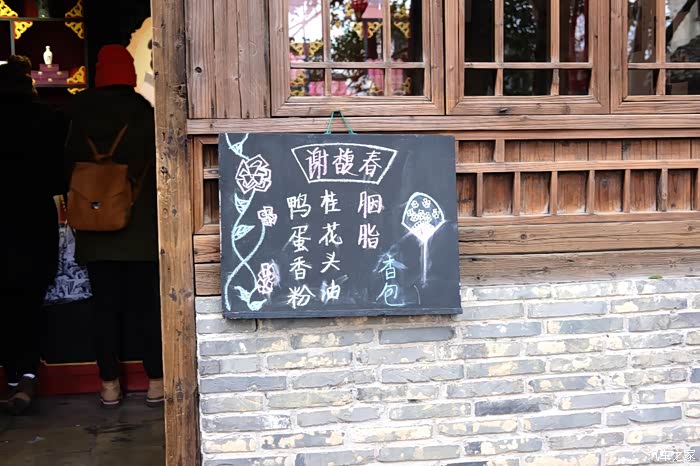 谢馥春
胭脂
桂花头油
鸭蛋香粉
香包
汽车之家